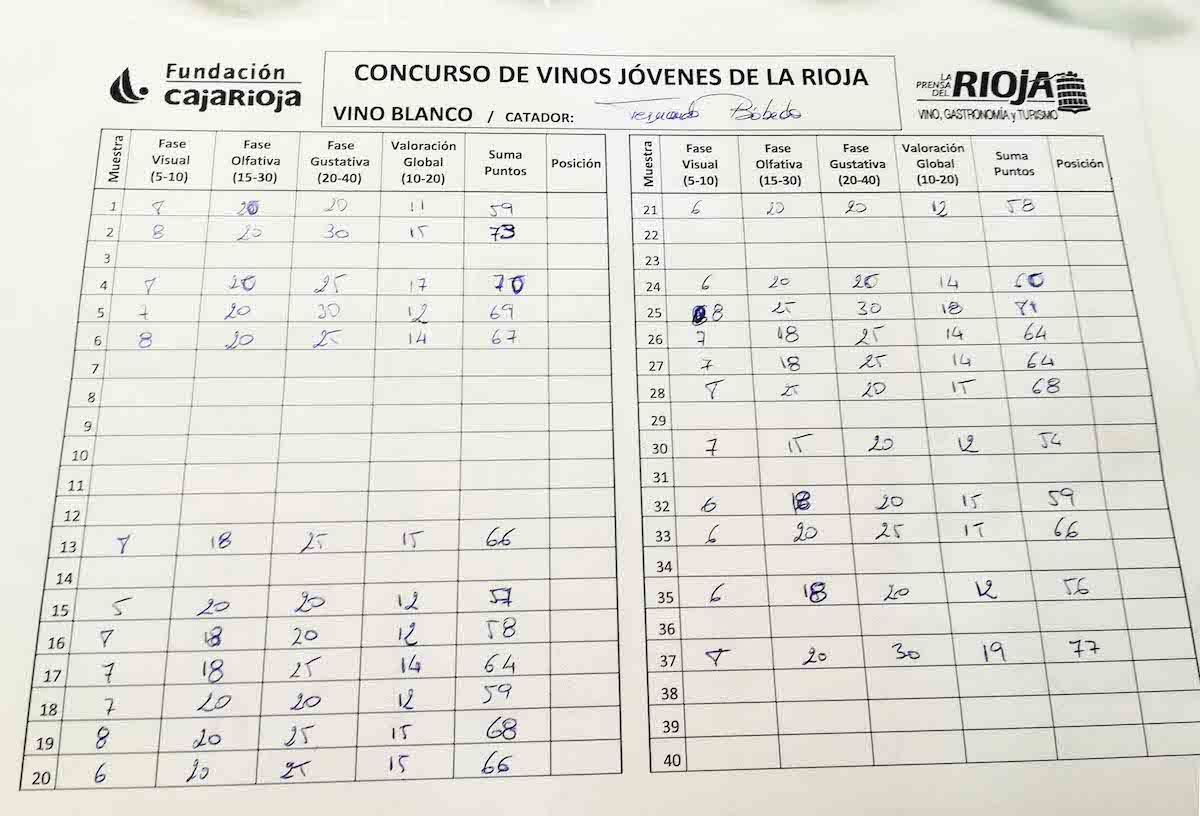 Fundación
cajaRioja
CONCURSO DE VINOS JÓVENES DE LA RIOJA
VINO BLANCO / CATADOR: Fernando Bóbeda
LA PRENSA DEL RIOJA
VINO, GASTRONOMÍA y TURISMO
Muestra Fase Visual (5-10) Fase Olfativa (15-30) Fase Gustativa (20-40) Valoración Global (10-20) Suma Puntos Posición
1 8 20 20 11 59
2 8 20 30 15 73
3
4 8 20 25 17 70
5 7 20 30 12 69
6 8 20 25 14 67
7
8
9
10
11
12
13 8 18 25 15 66
14
15 5 20 20 12 57
16 8 18 20 12 58
17 7 18 25 14 64
18 7 20 20 12 59
19 8 20 25 15 68
20 6 20 25 15 66
Muestra Fase Visual (5-10) Fase Olfativa (15-30) Fase Gustativa (20-40) Valoración Global (10-20) Suma Puntos Posición
21 6 20 20 12 58
22
23
24 6 20 20 14 60
25 8 25 30 18 81
26 7 18 25 14 64
27 7 18 25 14 64
28 8 25 20 15 68
29
30 7 15 20 12 54
31
32 6 18 20 15 59
33 6 20 25 15 66
34
35 6 18 20 12 56
36
37 8 20 30 19 77
38
39
40